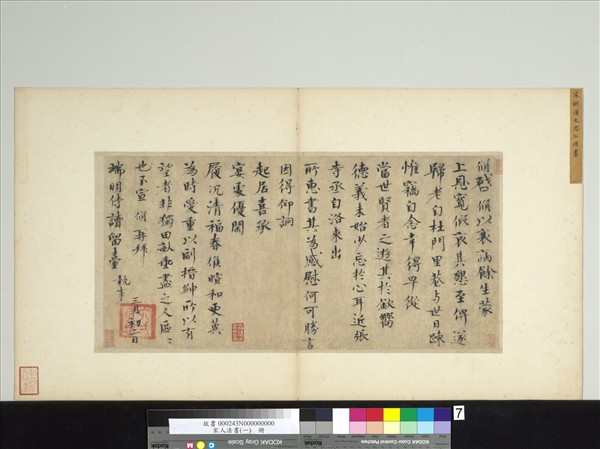 宋歐陽文忠公脩書
脩啟脩以衰病餘生蒙
上恩寬假哀其懇至俾遂
歸老自杜門里巷與世日踈
惟竊自念幸得早從
當世賢者之遊其於欽嚮
德義未始少忘於心耳近張
寺丞自洛來出
所惠書其為感慰何可勝言
因得仰詢
起居喜承
宴處優閒
履況清福春候暄和更冀
為時愛重以副搢紳所以有
望者非獨田畝垂盡之人區〻
也不宣脩再拜
端明侍讀留臺執事
三月初二日
故書 000243N000000000
宋人法書(一) 冊
KODAK Gray Scale
KODAK Color Control Patches
7